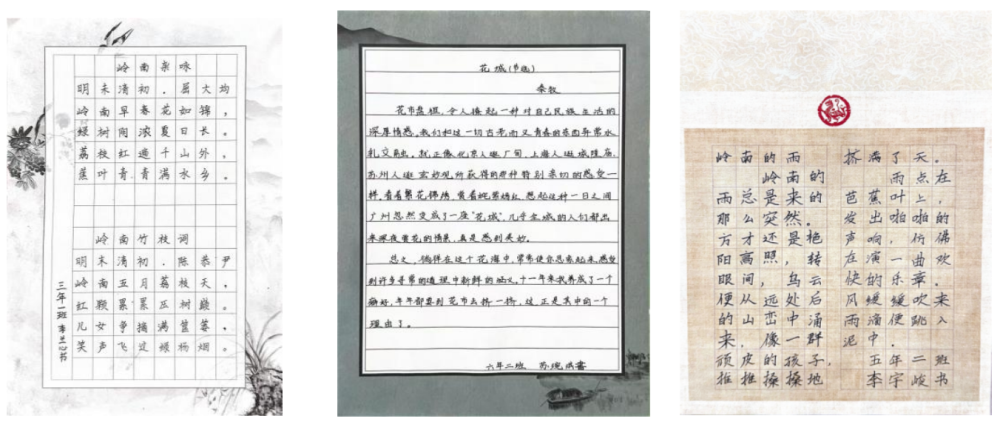 岭南杂咏
明末清初·屈大均
岭南早春花如锦，
绿树阴浓夏日长。
荔枝红遍千山外，
蕉叶青青满水乡。
岭南竹枝词
明末清初·陈恭尹
岭南五月荔枝天，
红鞭累累压树巅。
儿女争摘满筐，
笑声飞过绿杨烟。
三年一班 李兰心书
花城(节选)
秦牧
花市盛况，令人撩起一种对自己民族生活的
深厚情感，我们和这一切古老而又青春的东西异常水
乳交融，就正像北京人逛厂甸，上海人逛城隍庙，
苏州人逛玄妙观所获得的那种特别亲切的感受一
样，看着繁花锦绣，赏着姹紫嫣红，想起这种一日之间
广州忽然变成了一座“花城”，几乎全城的人们都出
来深夜赏花的情景，真是感到美妙。
总之，徜徉在这个花海中，常常使你思索起来，感受
到许多寻常的道理中新鲜的涵义，十一年来我养成了一个
癖好，年年都要到花市去挤一挤，这正是其中的一个
理由了。
六年二班 苏琬
岭南的雨
岭南的
雨总是来的
那么突然。
方才还是艳
阳高照，转
眼间，乌云
便从远处后
的山峦中涌
来，像一群
顽皮的孩子，
推推搡搡地
挤满了天。
雨点在
芭蕉叶上，
发出啪啪的
声响，仿佛
在演一曲欢
快的乐章。
风缓缓吹来
雨滴便跳入
泥中。
五年二班
李宇峻书